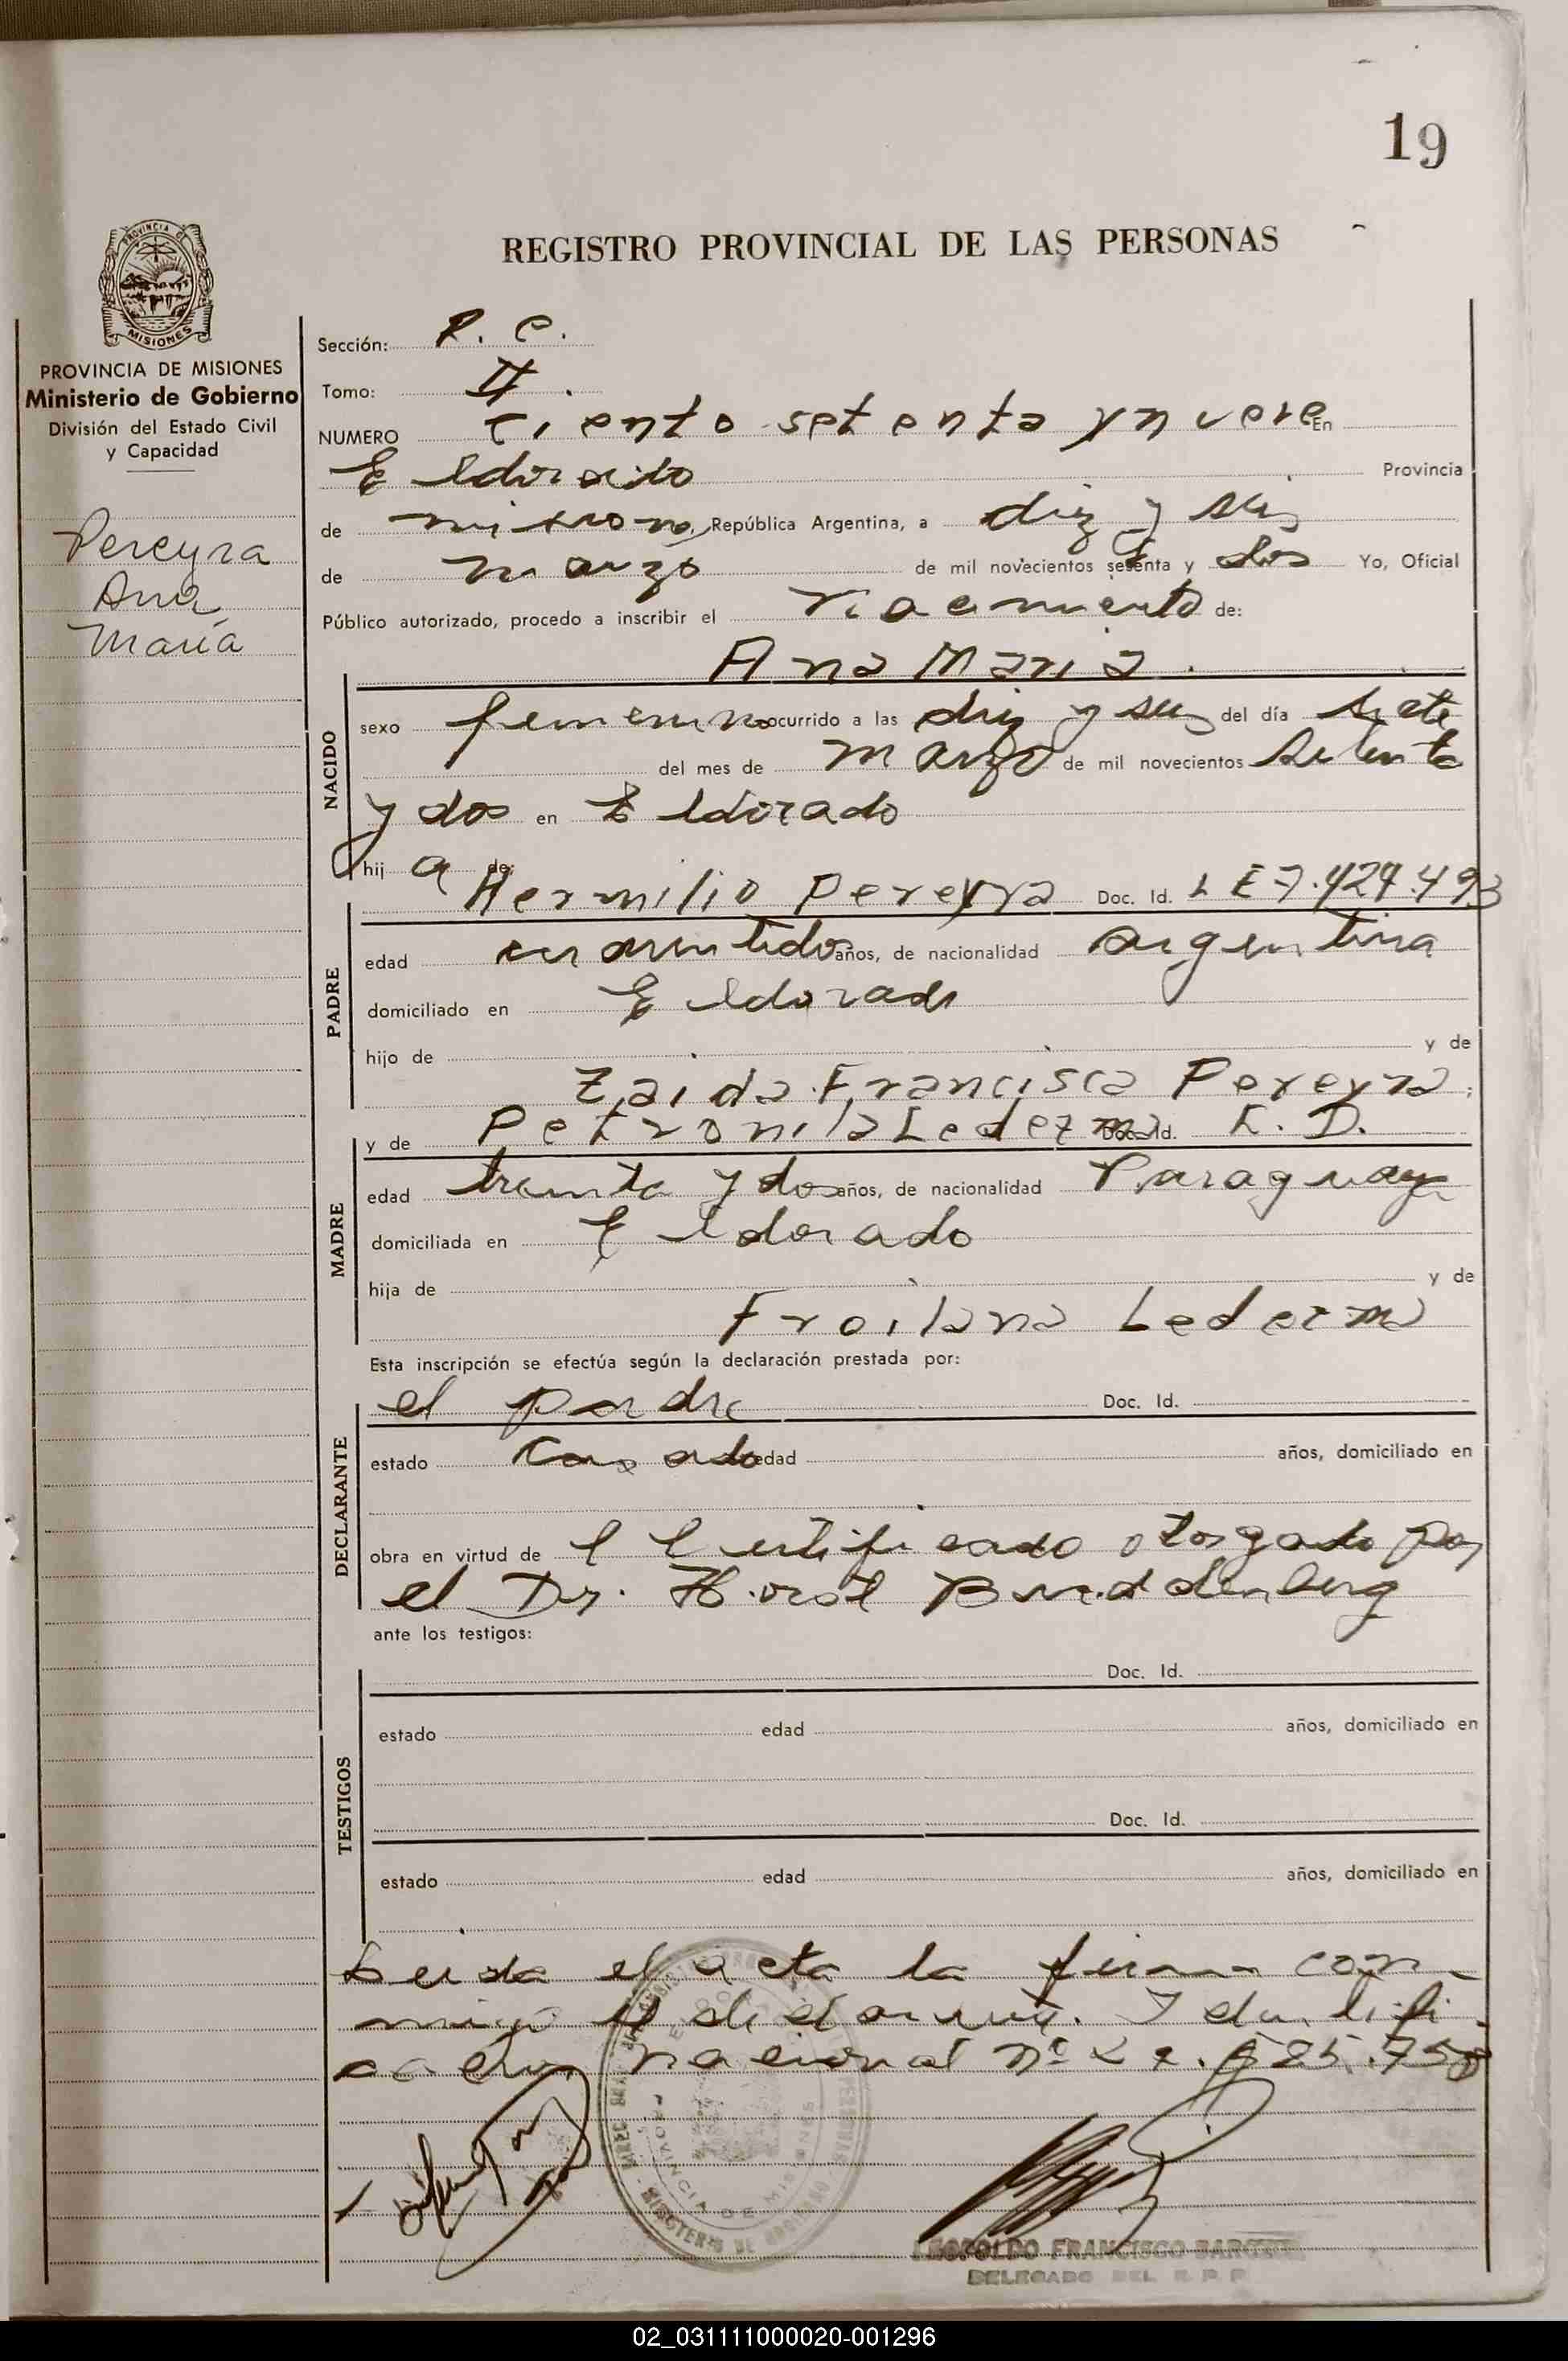 19
REGISTRO PROVINCIAL DE LAS PERSONAS
PROVINCIA DE
MISIONES
PROVINCIA DE MISIONES
Ministerio de Gobierno
División del Estado Civil
y Capacidad
Pereyra
Ana
María
Sección: R. C.
Tomo: II.
NUMERO Ciento setenta y nueve En
Eldorado Provincia
de misiones, República Argentina, a diez y seis
de marzo de mil novecientos setenta y dos Yo, Oficial
Público autorizado, procedo a inscribir el nacimiento de:
Ana Maria.
NACIDO
sexo femenino ocurrido a las diez y seis del día siete
del mes de marzo de mil novecientos setenta
y dos en Eldorado
hij a de:
Hermilio Pereyra Doc. Id. L E 7.429.493
PADRE
edad cuarentidos años, de nacionalidad argentina
domiciliado en Eldorado
hijo de y de
Zaida Francisca Pereyra;
y de Petronila Ledezma Doc. Id. E. D.
MADRE
edad treinta y dos años, de nacionalidad Paraguaya
domiciliada en Eldorado
hija de y de
Froilana Ledezma
Esta inscripción se efectúa según la declaración prestada por:
el padre Doc. Id.
DECLARANTE
estado casado edad años, domiciliado en
obra en virtud de el Certificado otorgado por
el Dr. Horst
ante los testigos:
Doc. Id.
TESTIGOS
estado edad años, domiciliado en
Doc. Id.
estado edad años, domiciliado en
Leida el acta la firma con-
migo el declarante. Identifi-
cación nacional nº
PROVINCIA DE MISIONES
LEOPOLDO FRANCISCO
DELEGADO DEL R. P. P.
02_031111000020-001296